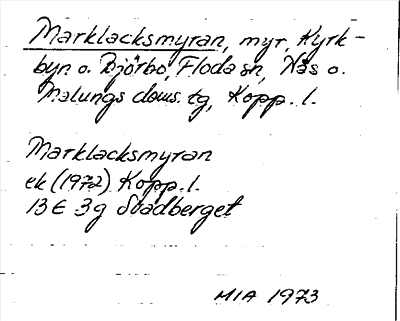 Marklacksmyran, myr, Kyrk-
byn o. Björbo, Floda sn, Nås o.
Malungs doms. tg, Kopp. l.
Marklacksmyran
ek (1972) Kopp. l.
13 E 3g Svadberget
MIA 1973